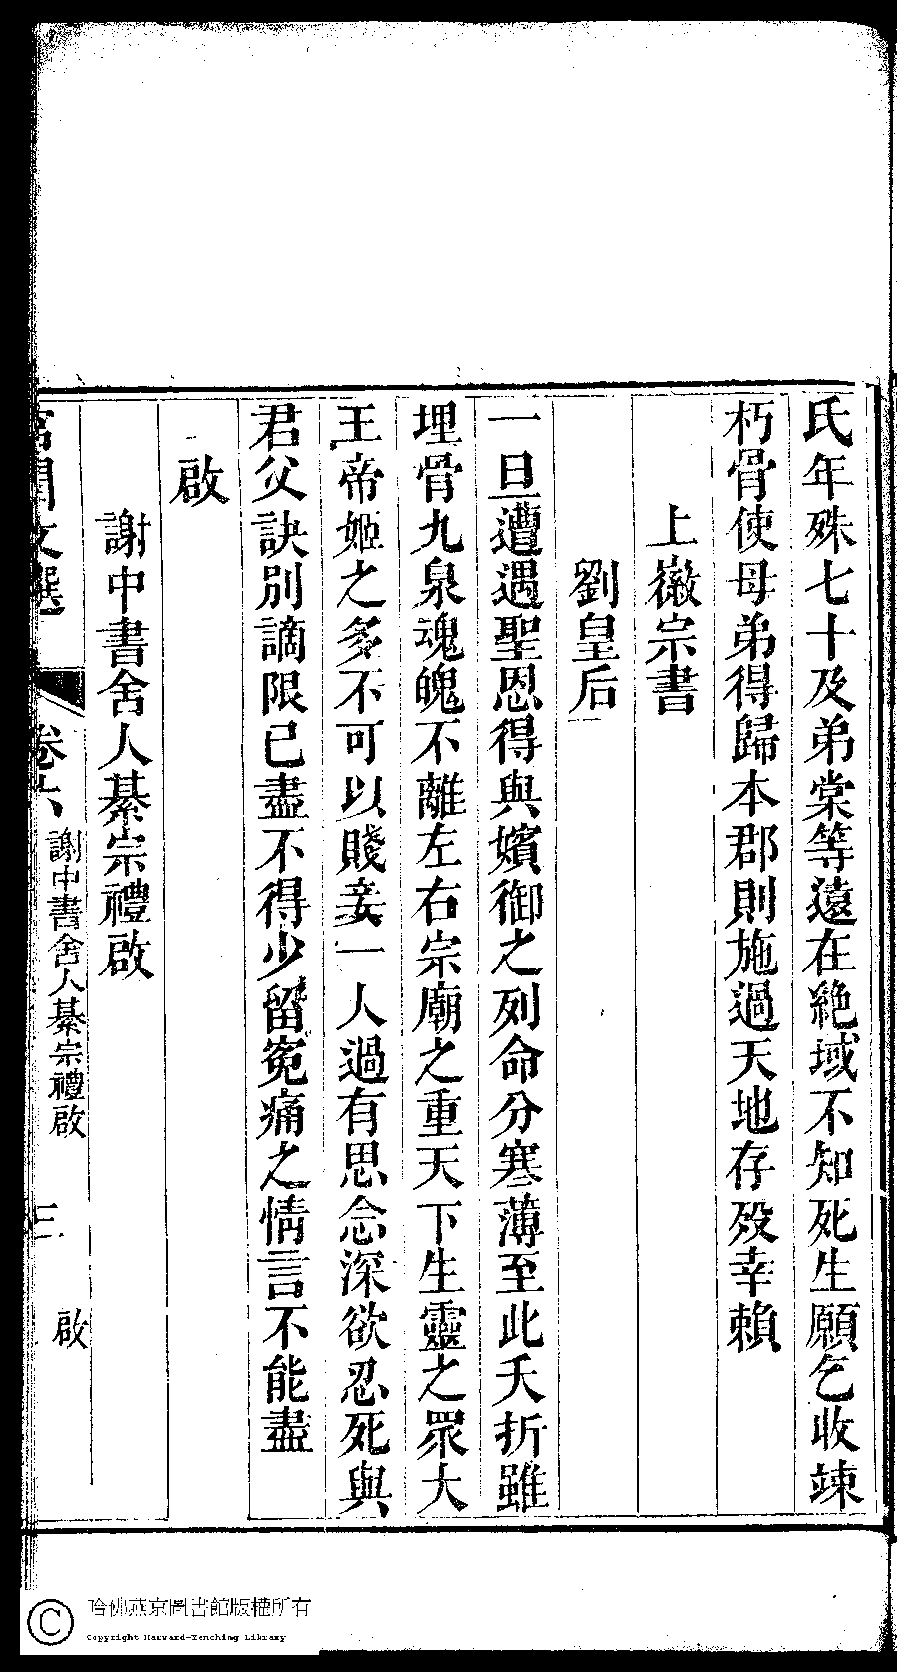 氏年殊七十及弟棠等遠在絕域不知死生願乞收竦
朽骨使母弟得歸本郡則施過天地存歿幸賴
上徽宗書
劉皇后
一旦遭遇聖恩得與嬪御之列命分寒薄至此夭折雖
埋骨九泉魂魄不離左右宗廟之重天下生靈之眾大
王帝姬之多不可以賤妾一人過有思念深欲忍死與
君父訣別謫限已盡不得少留冤痛之情言不能盡
啟
謝中書舍人綦宗禮啟
宮閨文選
卷六
謝中書舍人綦宗禮啟
三
啟
哈佛燕京圖書館版權所有
Copyright Harvard-Yenching Library